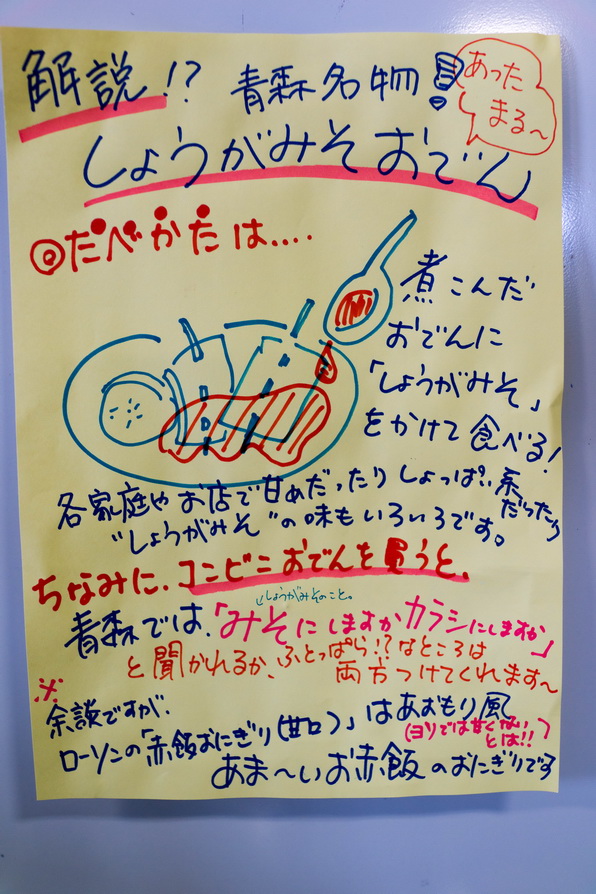 解説!?
青森名物!
あった
まる〜
しょうがみそおでん
◎たべかたは....
煮こんだ
おでんに
「しょうがみそ」
をかけて食べる!
各家庭やお店で甘めだったりしょっぱい系
だったり
"しょうがみそ"の味もいろいろです。
ちなみに、コンビニおでんを買うと、
↓しょうがみそのこと。
青森では、「みそにしますかカラシにしますか」
と聞かれるか、ふとっぱら!?なところは
両方つけてくれます〜
※
余談ですが、
ローソンの「赤飯おにぎり(甘口)」はあおもり風
(ヨソでは甘くない
とは!!)
あま〜いお赤飯のおにぎりです